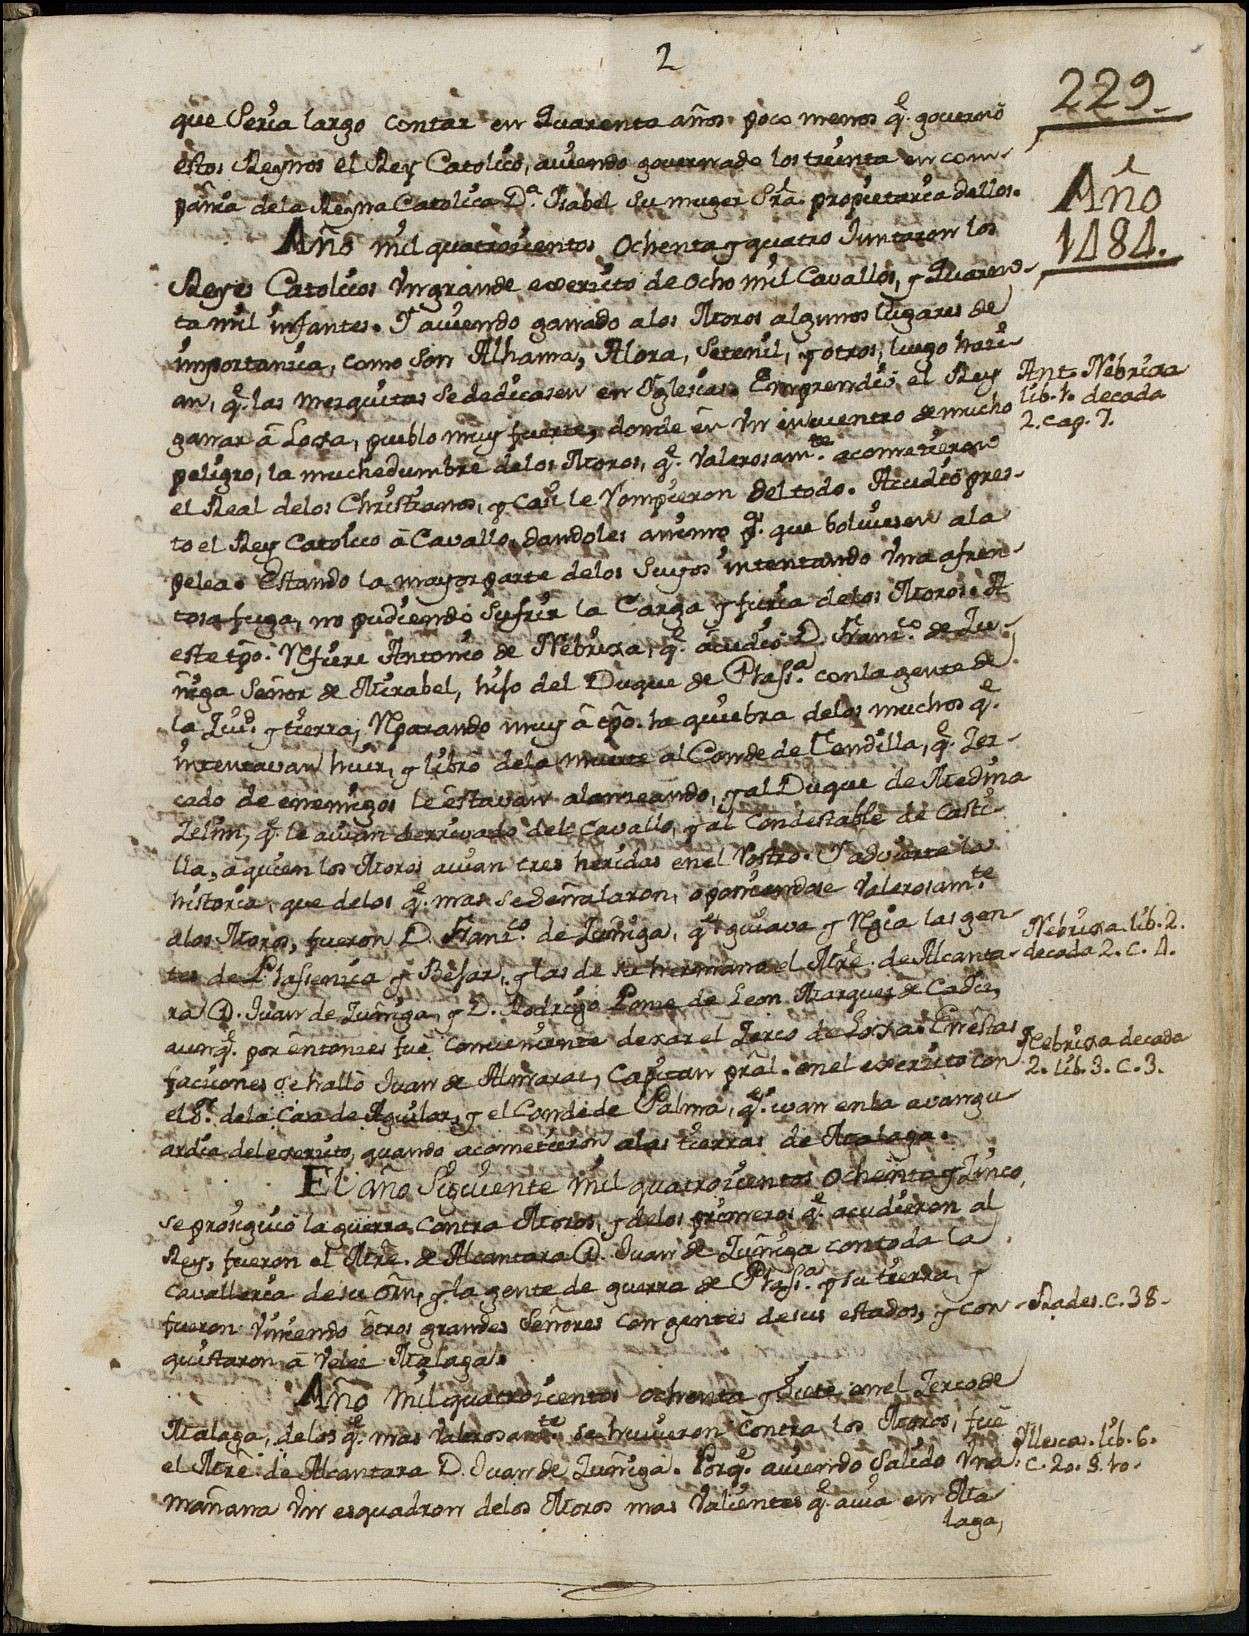 2
229.
que Seria largo contar en Quarenta años poco menos q.e governó
estos Reynos el Rey Catolico, aviendo governado los treinta en com-
pañia dela Reyna Catolica D.a Isabel su muger S.ra propietaria dellos.
Año
1484.
Año mil quatrocientos ochenta y quatro Juntaron los
Reyes Catolicos Vn grande exercito de ocho mil Cavallos, y Quaren-
ta mil infantes. Y aviendo ganado alos Moros algunos lugares de
importancia, como son Alhama, Alora, Setenil, y otros, luego haci-
an, q.e las mezquitas Se dedicasen en Yglesias. Emprendió el Rey
Ant.o Nebrixa
lib. 1. decada
2. cap. 7.
ganar â Loxa, pueblo muy fuerte, donde en Vn encuentro de mucho
peligro, la muchedumbre delos Moros, q.e Valerosam.te acometieron
el Real delos Christianos, y casi le Rompieron del todo. Acudió pres-
to el Rey Catolico â Cavallo, dandoles animo p.a que bolviesen ala
pelea. Estando la mayor parte delos Suyos intentando Vna afren-
tosa fuga, no pudiendo Sufrir la Carga y furia delos Moros. A
este tpõ. Refiere Antonio de Nebrixa, q.e acudió D. Fran.co de Zu-
ñiga Señor de Mirabel, hijo del Duque de Plas.a con la gente de
la Ziu.d y tierra, Reparando muy â tpõ. la quiebra delos muchos q.e
intentavan huir, y libró dela muerte al Conde de Tendilla, q.e Zer-
cado de enemigos le estavan alanzeando, y al Duque de Medina
Zelim, q.e le avian derrivado del Cavallo, y al Condestable de Casti-
lla, â quien los Moros avian tres heridas en el Rostro. Y advierte la
historia, que delos q.e mas se señalaron, oponiendose Valerosam.te
alos Moros, fueron D. Fran.co de Zuñiga, q.e guiava y Regia las gen-
Nebrixa. lib. 2.
decada 2. c. 4.
tes de Plasencia y Bejar, y las de su hermano el Mrê. de Alcanta-
ra D. Juan de Zuñiga, y D. Rodrigo Ponce de Leon Marques de Cadiz,
aunq.e por entonzes fue conveniente dexar el Zerco de Loxa. En estas
Nebrixa decada
2. lib. 3. c. 3.
facciones Se halló Juan de Almaraz, Capitan prãl. en el exercito con
el S.r dela Casa de Aguilar, y el Conde de Palma, q.e ivan en la avangu
ardia del exercito, quando acometieron alas tierras de Malaga.
El año Siguiente mil quatrocientos ochenta y Zinco,
se prosiguió la guerra contra Moros, y delos primeros q.e acudieron al
Rey, fueron el Mrê. de Alcantara D. Juan de Zuñiga con toda la
Cavalleria de su orn, y la gente de guerra de Plas.a y su tierra, y
fueron Viniendo otros grandes Señores con gentes de sus estados, y con-
Rades. c. 38.
quistaron â Velez Malaga.
Año mil quatrocientos ochenta y Ziete en el Zerco de
Malaga, delos q.e mas Valerosam.te se huvieron contra los Moros, fue
Yllescas. lib. 6.
c. 20. §. 10.
el Mrê. de Alcantara D. Juan de Zuñiga. Porq.e aviendo Salido Vna
mañana Vn esquadron delos Moros mas Valientes q.e avia en Ma
laga,